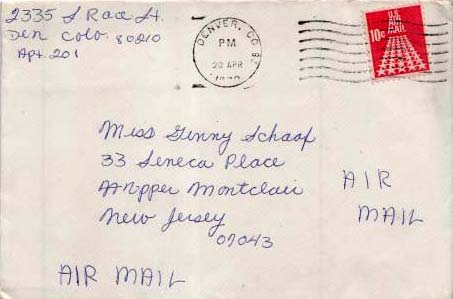 2335 S Race St.
Den Colo. 80210
Apt. 201
DENVER, CO
PM
20 APR
U.S.
AIR
MAIL
10c
Miss Ginny Schaaf
33 Seneca Place
Upper Montclair
New Jersey
07043
AIR
MAIL
AIR MAIL